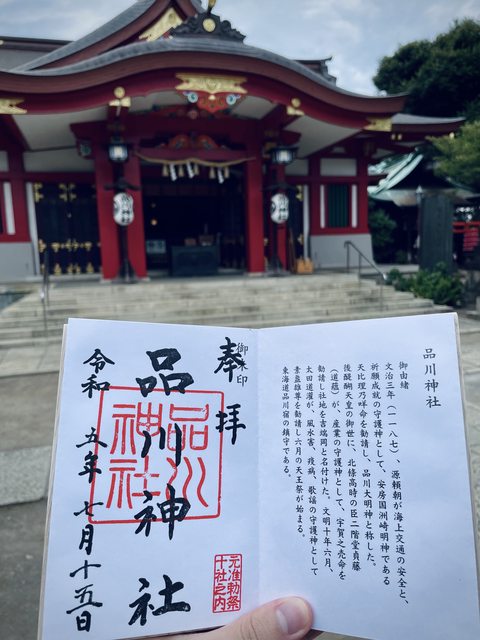 品川神社
御由緒
文治三年(一一八七)、源頼朝が海上交通の安全と、
祈願成就の守護神として、安房国洲崎明神である
天比理乃咩命を勧請し、品川大明神と称した。
後醍醐天皇の御世に、北條高時の臣二階堂貞藤
(道薀)が、産業の守護神として、宇賀之売命を
勧請し社地を吉端岡と名付けた。文明十年六月、
太田道灌が、風水害、疫病、歌謡の守護神として
素盞雄尊を勧請し六月の天王祭が始まる。
東海道品川宿の鎮守である。
御朱印
奉拝
品川神社
品川
神社
元准勅祭
十社之内
令和五年七月十五日